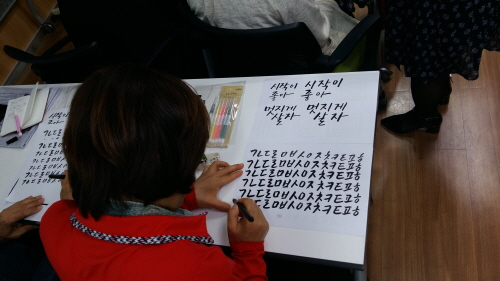 시작이 시작이
좋아 좋아
멋지게 멋지게
살자 살자
ㄱㄴㄷㄹㅁㅂㅅㅇㅈㅊㅋㅌㅍㅎ
ㄱㄴㄷㄹㅁㅂㅅㅇㅈㅊㅋㅌㅍㅎ
ㄱㄴㄷㄹㅁㅂㅅㅇㅈㅊㅋㅌㅍㅎ
ㄱㄴㄷㄹㅁㅂㅅㅇㅈㅊㅋㅌㅍㅎ
ㄱㄴㄷㄹㅁㅂㅅㅇㅈㅊㅋㅌㅍㅎ
ㄱㄴㄷㄹㅁㅂㅅㅇㅈㅊㅋㅌㅍㅎ
시작이
좋아